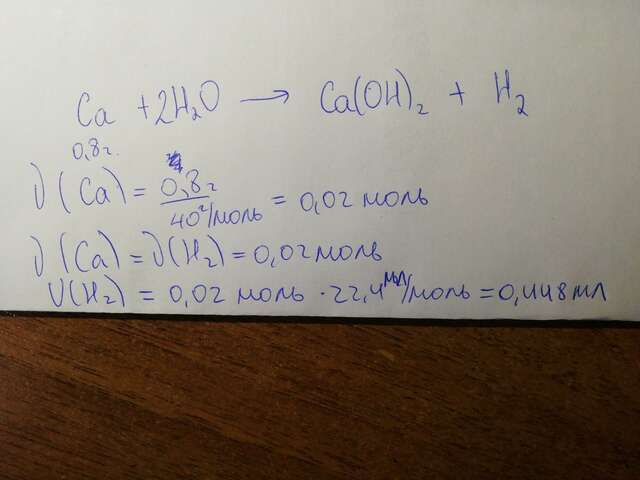 Ca + 2H₂O → Ca(OH)₂ + H₂
0,8г.
ν(Ca) = 0,8г / 40г/моль = 0,02 моль
ν(Ca) = ν(H₂) = 0,02 моль
V(H₂) = 0,02 моль · 22,4 мл/моль = 0,448 мл